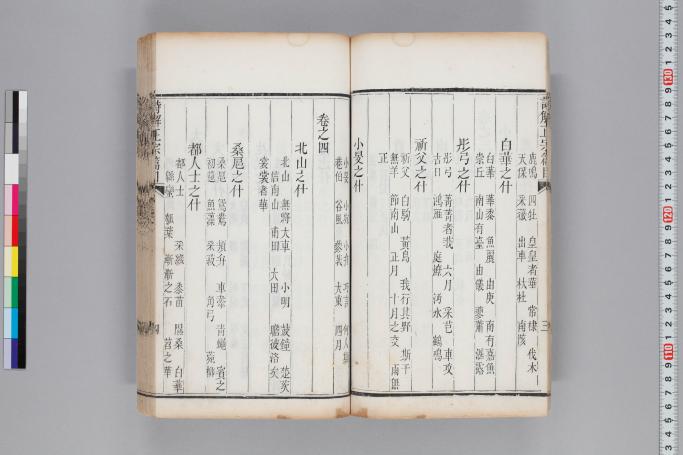 鹿鳴 四牡 皇皇者華 常棣 伐木
天保 采薇 出車 杕杜 南陔
白華之什
白華 華黍 魚麗 由庚 南有嘉魚
崇丘 南山有臺 由儀 蓼蕭 湛露
彤弓之什
彤弓 菁菁者莪 六月 采芑 車攻
吉日 鴻雁 庭燎 沔水 鶴鳴
祈父之什
祈父 白駒 黃鳥 我行其野 斯干
無羊 節南山 正月 十月之交 雨無
正
小旻之什
小旻 小宛 小弁 巧言 何人斯
巷伯 谷風 蓼莪 大東 四月
卷之四
北山之什
北山 無將大車 小明 鼓鐘 楚茨
信南山 甫田 大田 瞻彼洛矣
裳裳者華
桑扈之什
桑扈 鴛鴦 頍弁 車舝 青蠅 賓之
初筵 魚藻 采菽 角弓 菀柳
都人士之什
都人士 采綠 黍苗 隰桑 白華
緜蠻 瓠葉 漸漸之石 苕之華